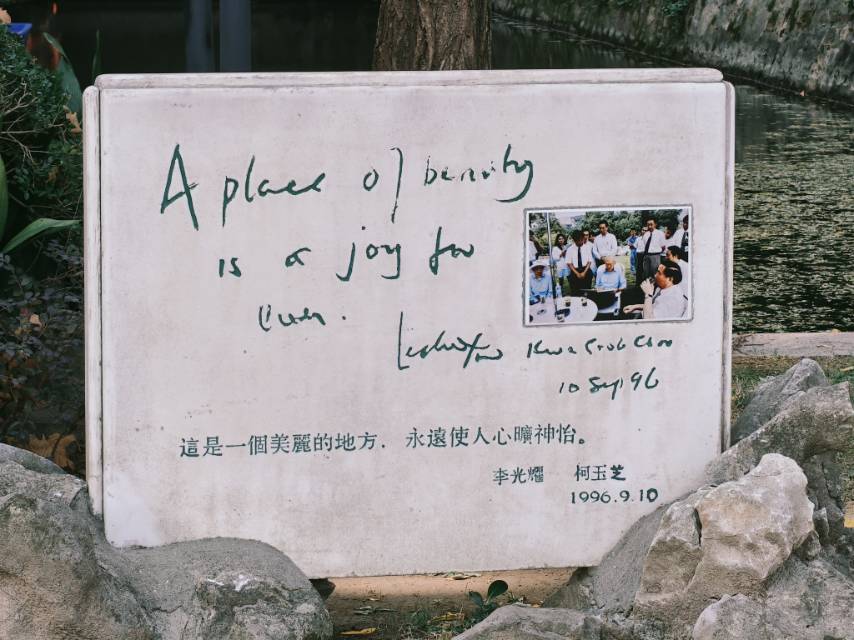 A place of beauty
is a joy for
ever.
Kwa Geok Choo
10 Sep 96
這是一個美麗的地方．永遠使人心曠神怡。
李光耀 柯玉芝
1996.9.10